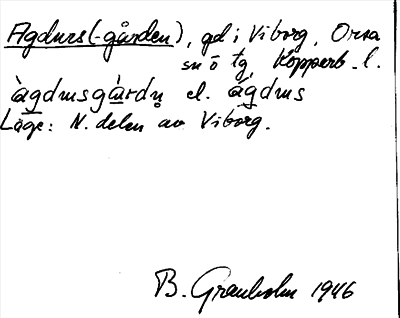 Agdurs (-gården), gd i Viborg, Orsa
sn ö tg, Kopparb. l.
àgdusgàrdn̥ el. ágdus
Läge: N. delen av Viborg.
B. Granholm 1946